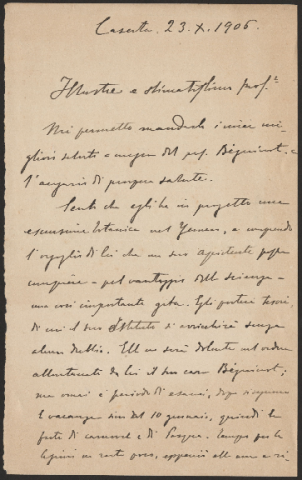 Caserta, 23.X.1906.
Illustre e stimatissimo prof.
Mi permetto mandarle i miei mi-
gliori saluti a mezzo del prof. Béguinot, e
l'augurio di prospera salute.
Sento che egli ha in progetto una
escursione botanica nel Yemen, e comprendo
l'orgoglio di lei che un suo assistente possa
compiere - pel vantaggio della scienza -
una così importante gita. Egli porterà tesori
di cui il suo Istituto si arricchirà senza
alcun dubbio. Ella ne sarà dolente nel vedere
allontanato da lei il suo caro Béguinot;
ma ormai è periodo di esami, dopo
vacanze sino del 10 gennaio, quindi le
feste di carnevale e di Pasqua.